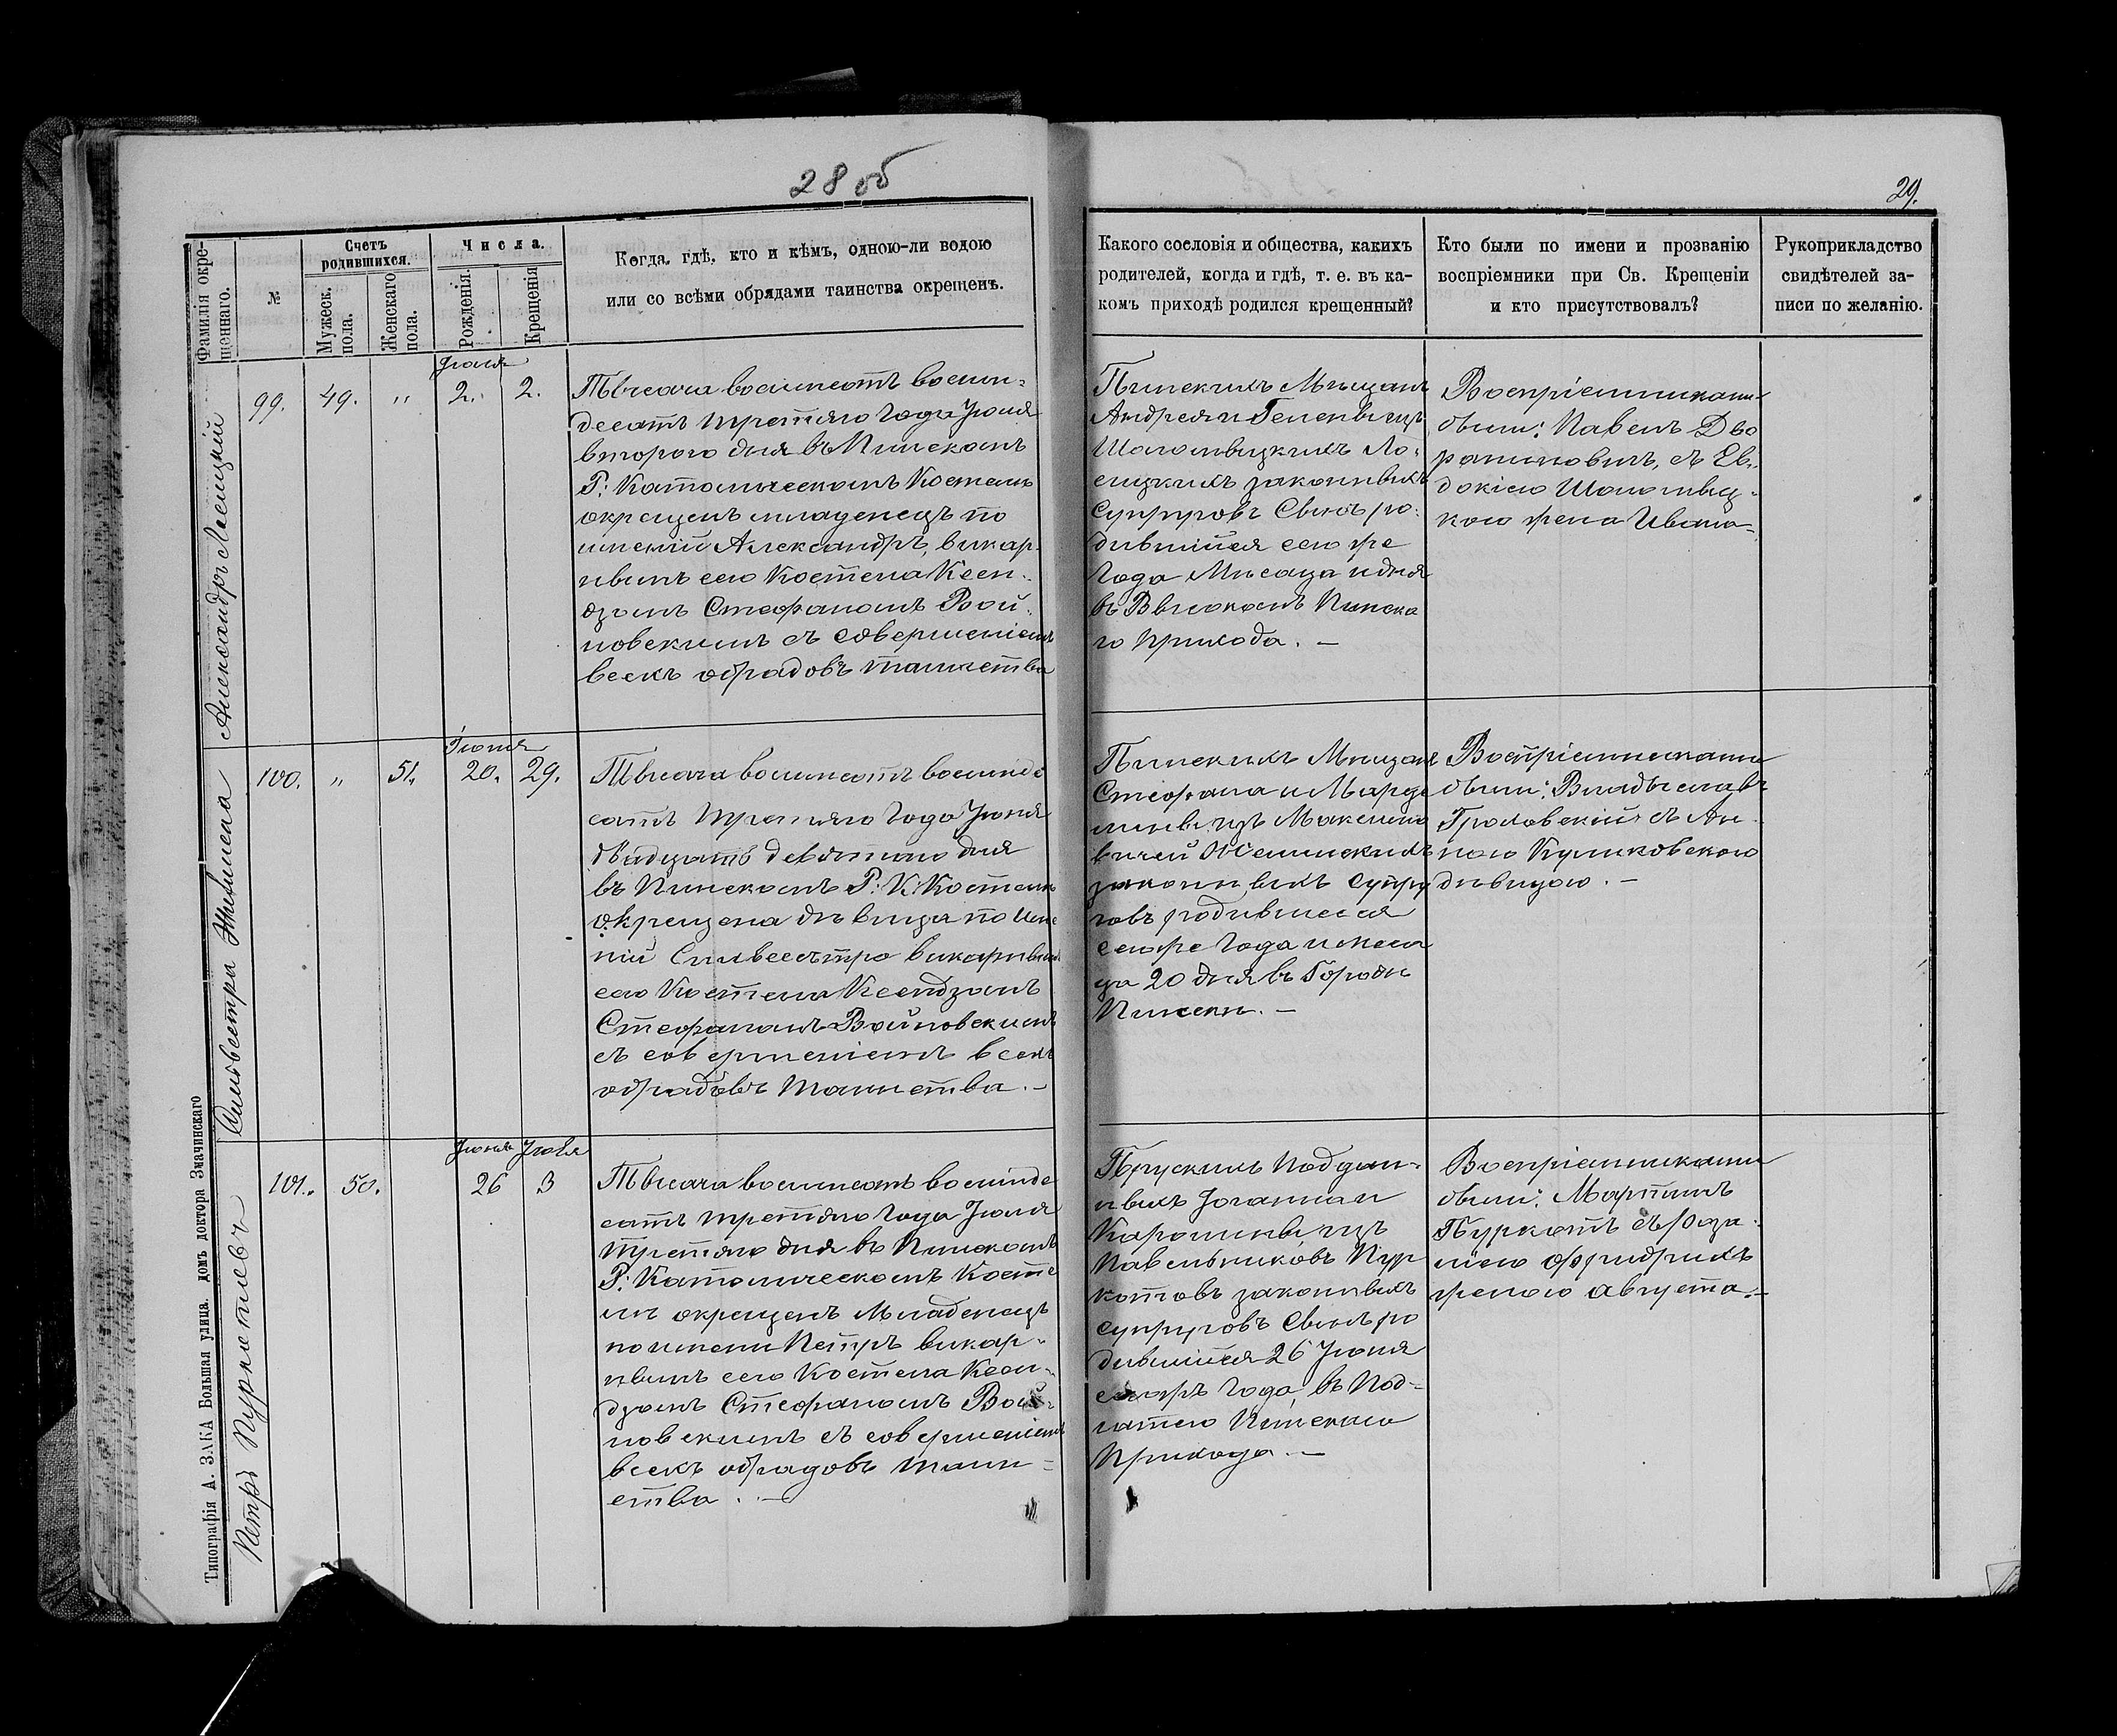 28 об
29.
Фамилія окре-
щеннаго.
№
Счетъ
родившихся.
Мужеск.
пола.
Женскаго
пола.
Числа.
Рожденія.
Крещенія
Когда, гдѣ, кто и кѣмъ, одною-ли водою
или со всѣми обрядами таинства окрещенъ.
Какого сословія и общества, какихъ
родителей, когда и гдѣ, т. е. въ ка-
комъ приходѣ родился крещенный?
Кто были по имени и прозванію
воспріемники при Св. Крещеніи
и кто присутствовалъ?
Рукоприкладство
свидѣтелей за-
писи по желанію.
Александръ Лосицкій
99.
49.
"
Іюля
2.
2.
Тысяча восимсотъ восим-
десятъ третяго Года Іюля
второго дня въ Пинскомъ
Р: Католическомъ Костелѣ
окрещенъ младенецъ по
имений Александръ, викар-
нымъ сего Костела Ксен-
дзомъ Стефаномъ Вой-
новскимъ съ совершеніемъ
всехъ обрадовъ таинства
Пинскихъ Мѣщанъ
Андрея и Гелены изъ
Шоломыцкихъ Ло-
сицкихъ законныхъ
Супруговъ Сынъ ро-
дившійся сего же
Года Мѣсаца и дня
въ Высокомъ Пинска
го прихода. —
Воспріемниками
были: Павелъ Дво
раниновичъ, съ Ев-
докіею Шоломыц-
кою жена Ивана-
Сильвестра Жилинска
100.
"
51.
Іюня
20.
29.
Тысяча восимсотъ восимде
сатъ Третяго Года Іюня
двадцать девятого дня
въ Пинскомъ Р: К: Костелѣ
окрещена дѣвица по име
ній Силвесьтра викарнымъ
сего Костела Ксендзомъ
Стефаномъ Войновскимъ
съ совершеніемъ всехъ
обрадовъ Таинства. —
Пинскихъ Мѣщанъ
Стефана и Марце
лины изъ
законныхъ Супру
говъ родившаяся
сегоже Года и меся
ца 20 дня въ Городѣ
Пинскѣ. —
Воспріемниками
были: Владыславъ
Гроховскій съ Ан-
ною Куликовскою
дѣвицою. —
Петръ
101.
50.
Іюня Іюля
26
3
Тысяча восимсотъ восимде
сатъ третяго Года Іюля
третяго дня въ Пинскомъ
Р: Католическомъ Косте
лѣ окрещенъ Младенецъ
по имени Петръ викар-
нымъ сего Костела Ксен-
дзомъ Стефаномъ Вой-
новскимъ съ совершеніемъ
всехъ обрадовъ таин-
ства. —
Прускихъ Поддан-
ныхъ Іоганна и
Каролины изъ
Павельчиковъ Пур
котовъ законныхъ
супруговъ Сынъ ро
дившійся 26 Іюня
сегоже Года, въ Под-
гатею Пинскаго
Прихода. —
Воспріемниками
были: Мартинъ
Пуркотъ съ Роза-
ліею Фридрихъ
женою Августа. —
Типографія А. ЗАКА Большая улица. домъ доктора Змачинскаго